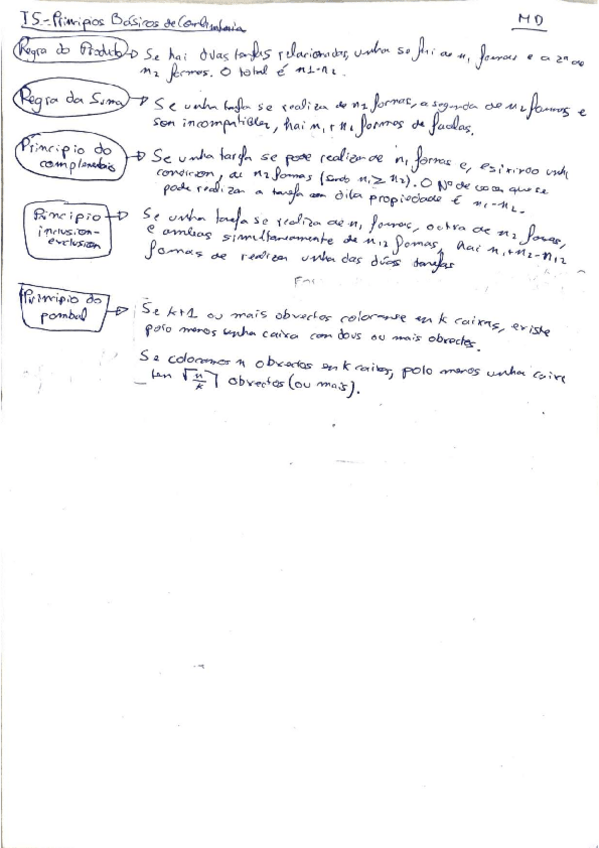 T5.-Principios Básicos de Combinatoria
MD
Regra do Produto → Se hai dúas tarefas relacionadas, unha se fai de n₁ formas e a 2ª de
n₂ formas. O total é n1·n₂.
Regra da Suma → Se unha tarefa se realiza de n₁ formas, a segunda de n₂ formas e
son incompatibles, hai n₁+n₂ formas de facelas.
Principio do → Se unha tarefa se pode realizar de n₁ formas e, esixindo unha
complementario condición, de n₂ formas (sendo n₁ ≥ n₂). O Nº de casos que se
pode realizar a tarefa con dita propiedade é n₁-n₂.
Principio → Se unha tarefa se realiza de n₁ formas, outra de n₂ formas,
inclusion- e ambas simultaneamente de n₁₂ formas, hai n₁+n₂-n₁₂
exclusion formas de realizar unha das dúas tarefas
Principio do → Se k+1 ou mais obxectos colócanse en k caixas, existe
pombal polo menos unha caixa con dous ou mais obxectos.
Se colocamos n obxectos en k caixas, polo menos unha caixa
ten ⌈n/k⌉ obxectos (ou mais).